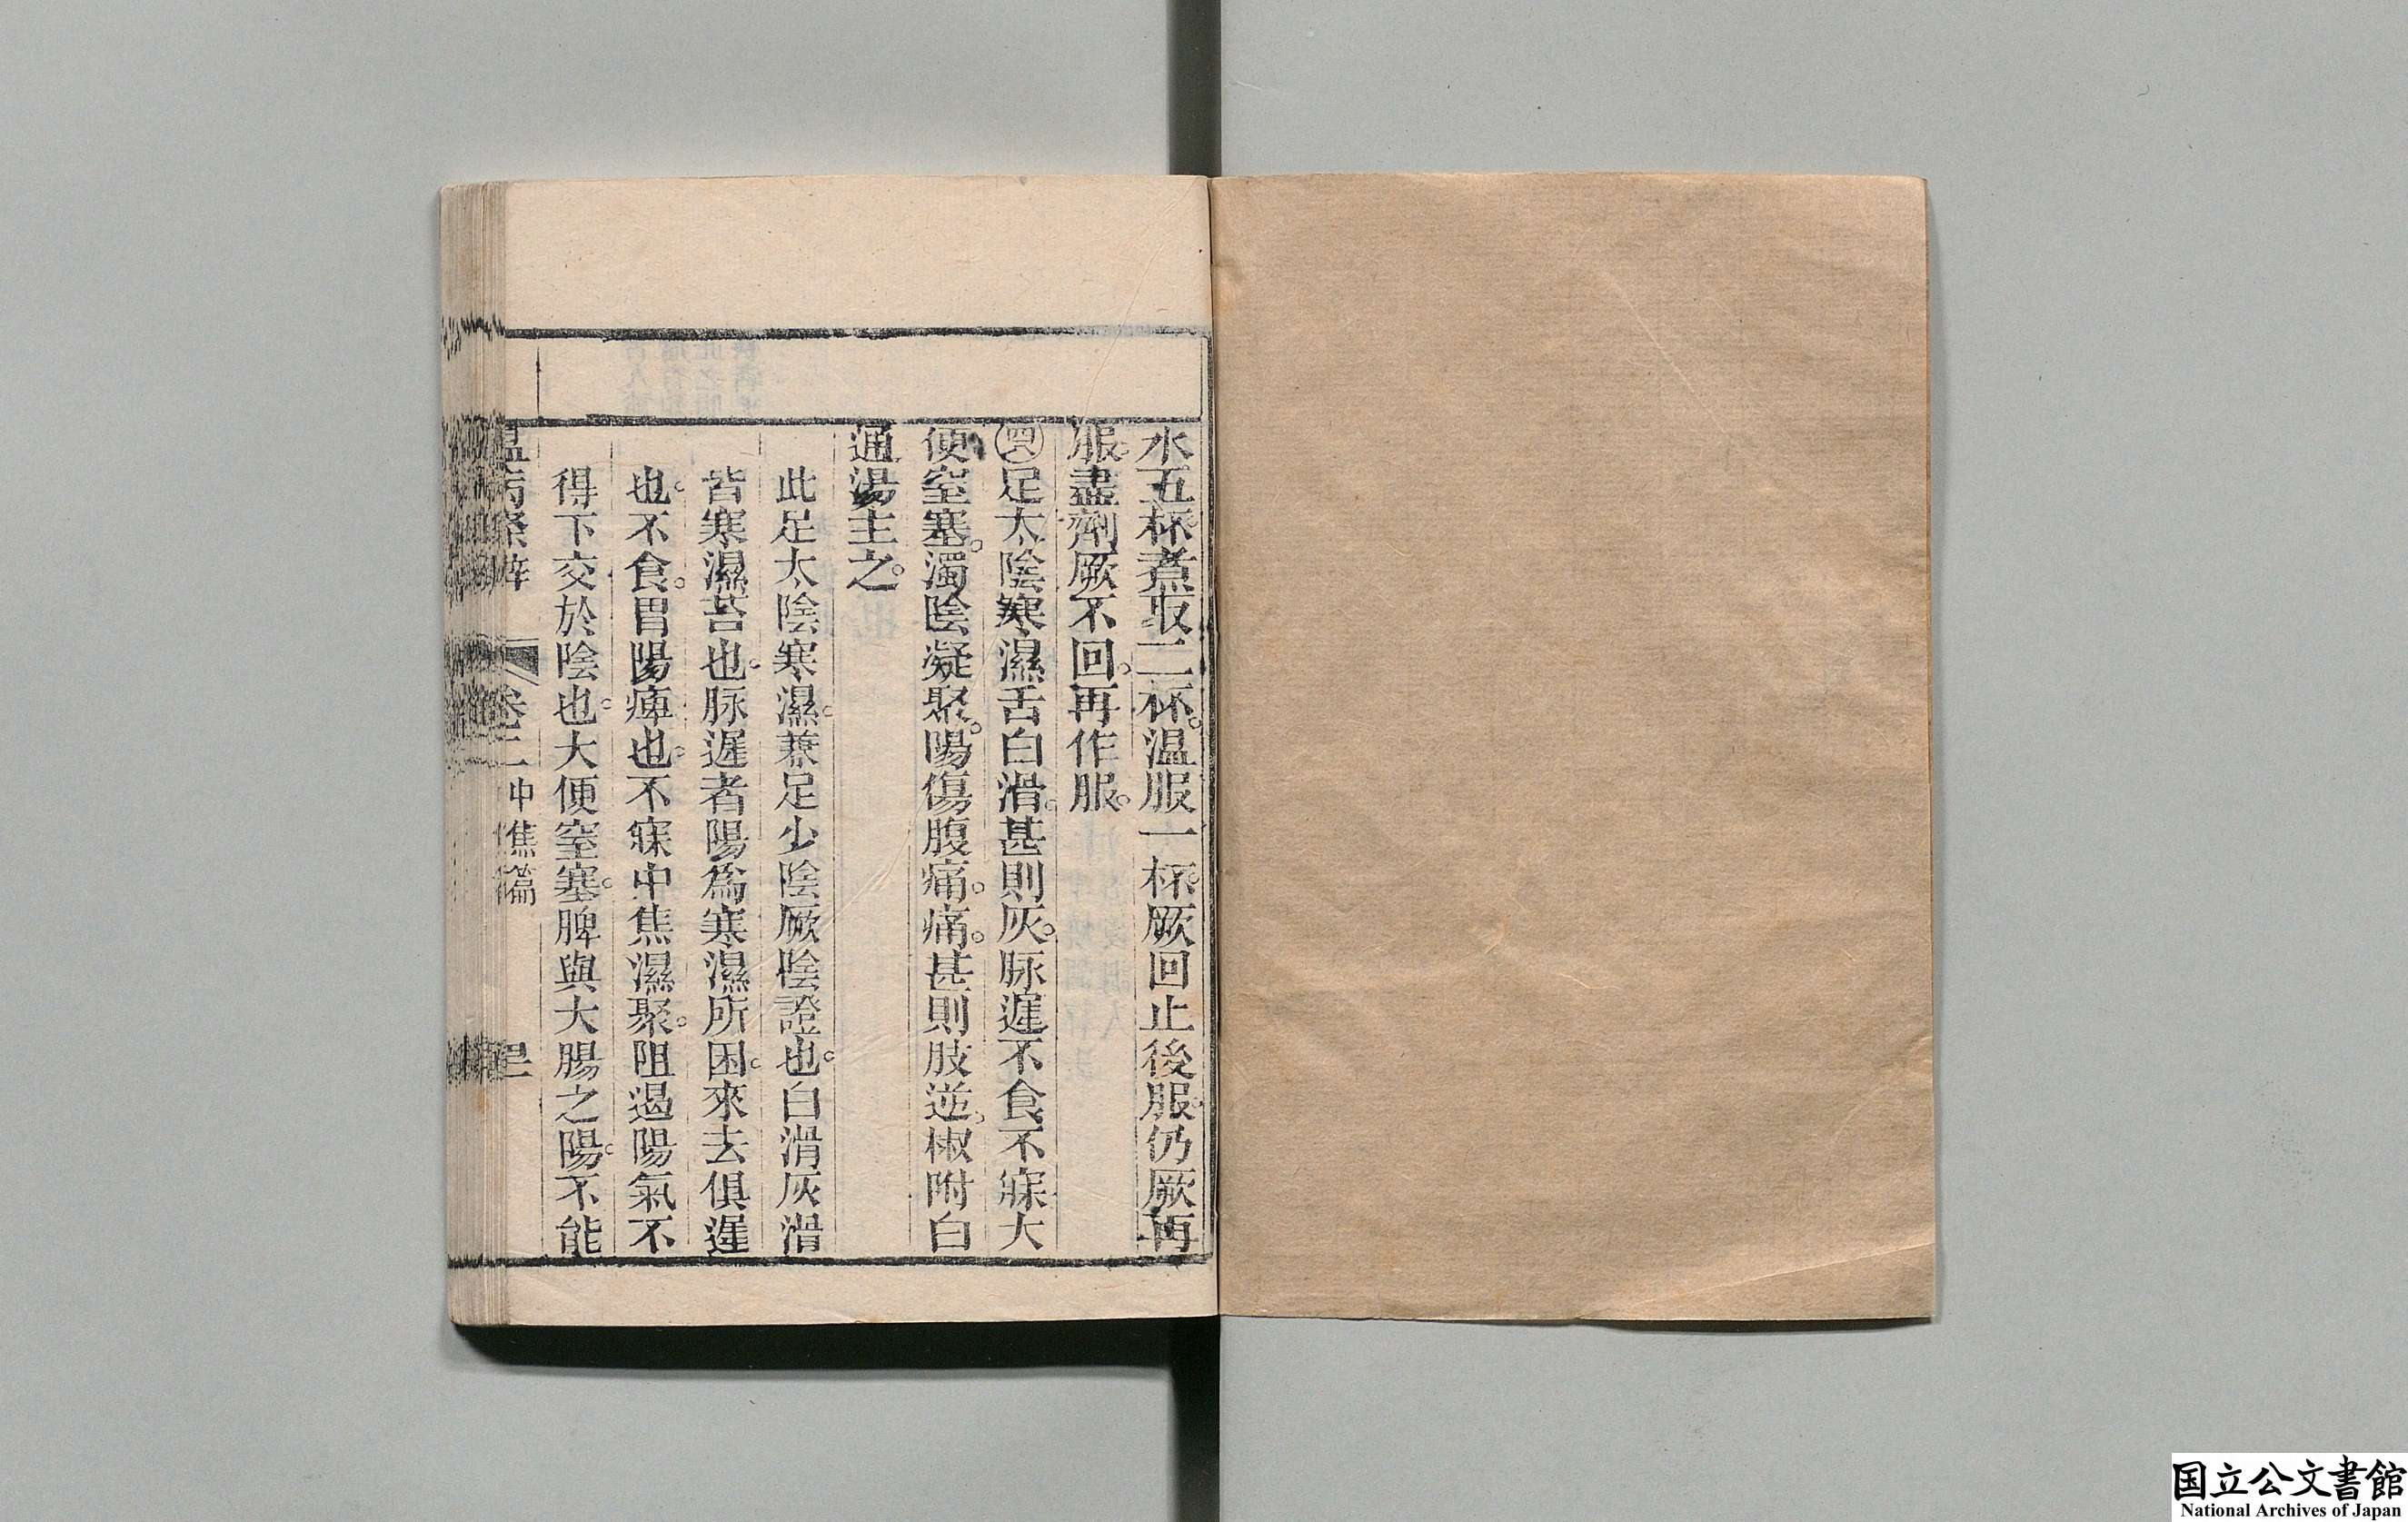 水五杯煮取二杯。温服一杯。厥回止後服。仍厥再
服。盡劑厥不回。再作服。
㊽足太陰寒濕舌白滑。甚則灰。脉遲不食不寐大
便窒塞。濁陰凝聚。陽傷腹痛。痛。甚則肢逆。椒附白
通湯主之。
此足太陰寒濕。兼足少陰厥陰證也。白滑灰滑
皆寒濕苔也。脉遲者陽爲寒濕所困。來去俱遲
也。不食。胃陽痺也。不寐中焦濕聚。阻遏陽氣不
得下交於陰也。大便窒塞。脾與大腸之陽。不能
溫病條辨 卷二 中焦篇
国立公文書館
National Archives of Japan